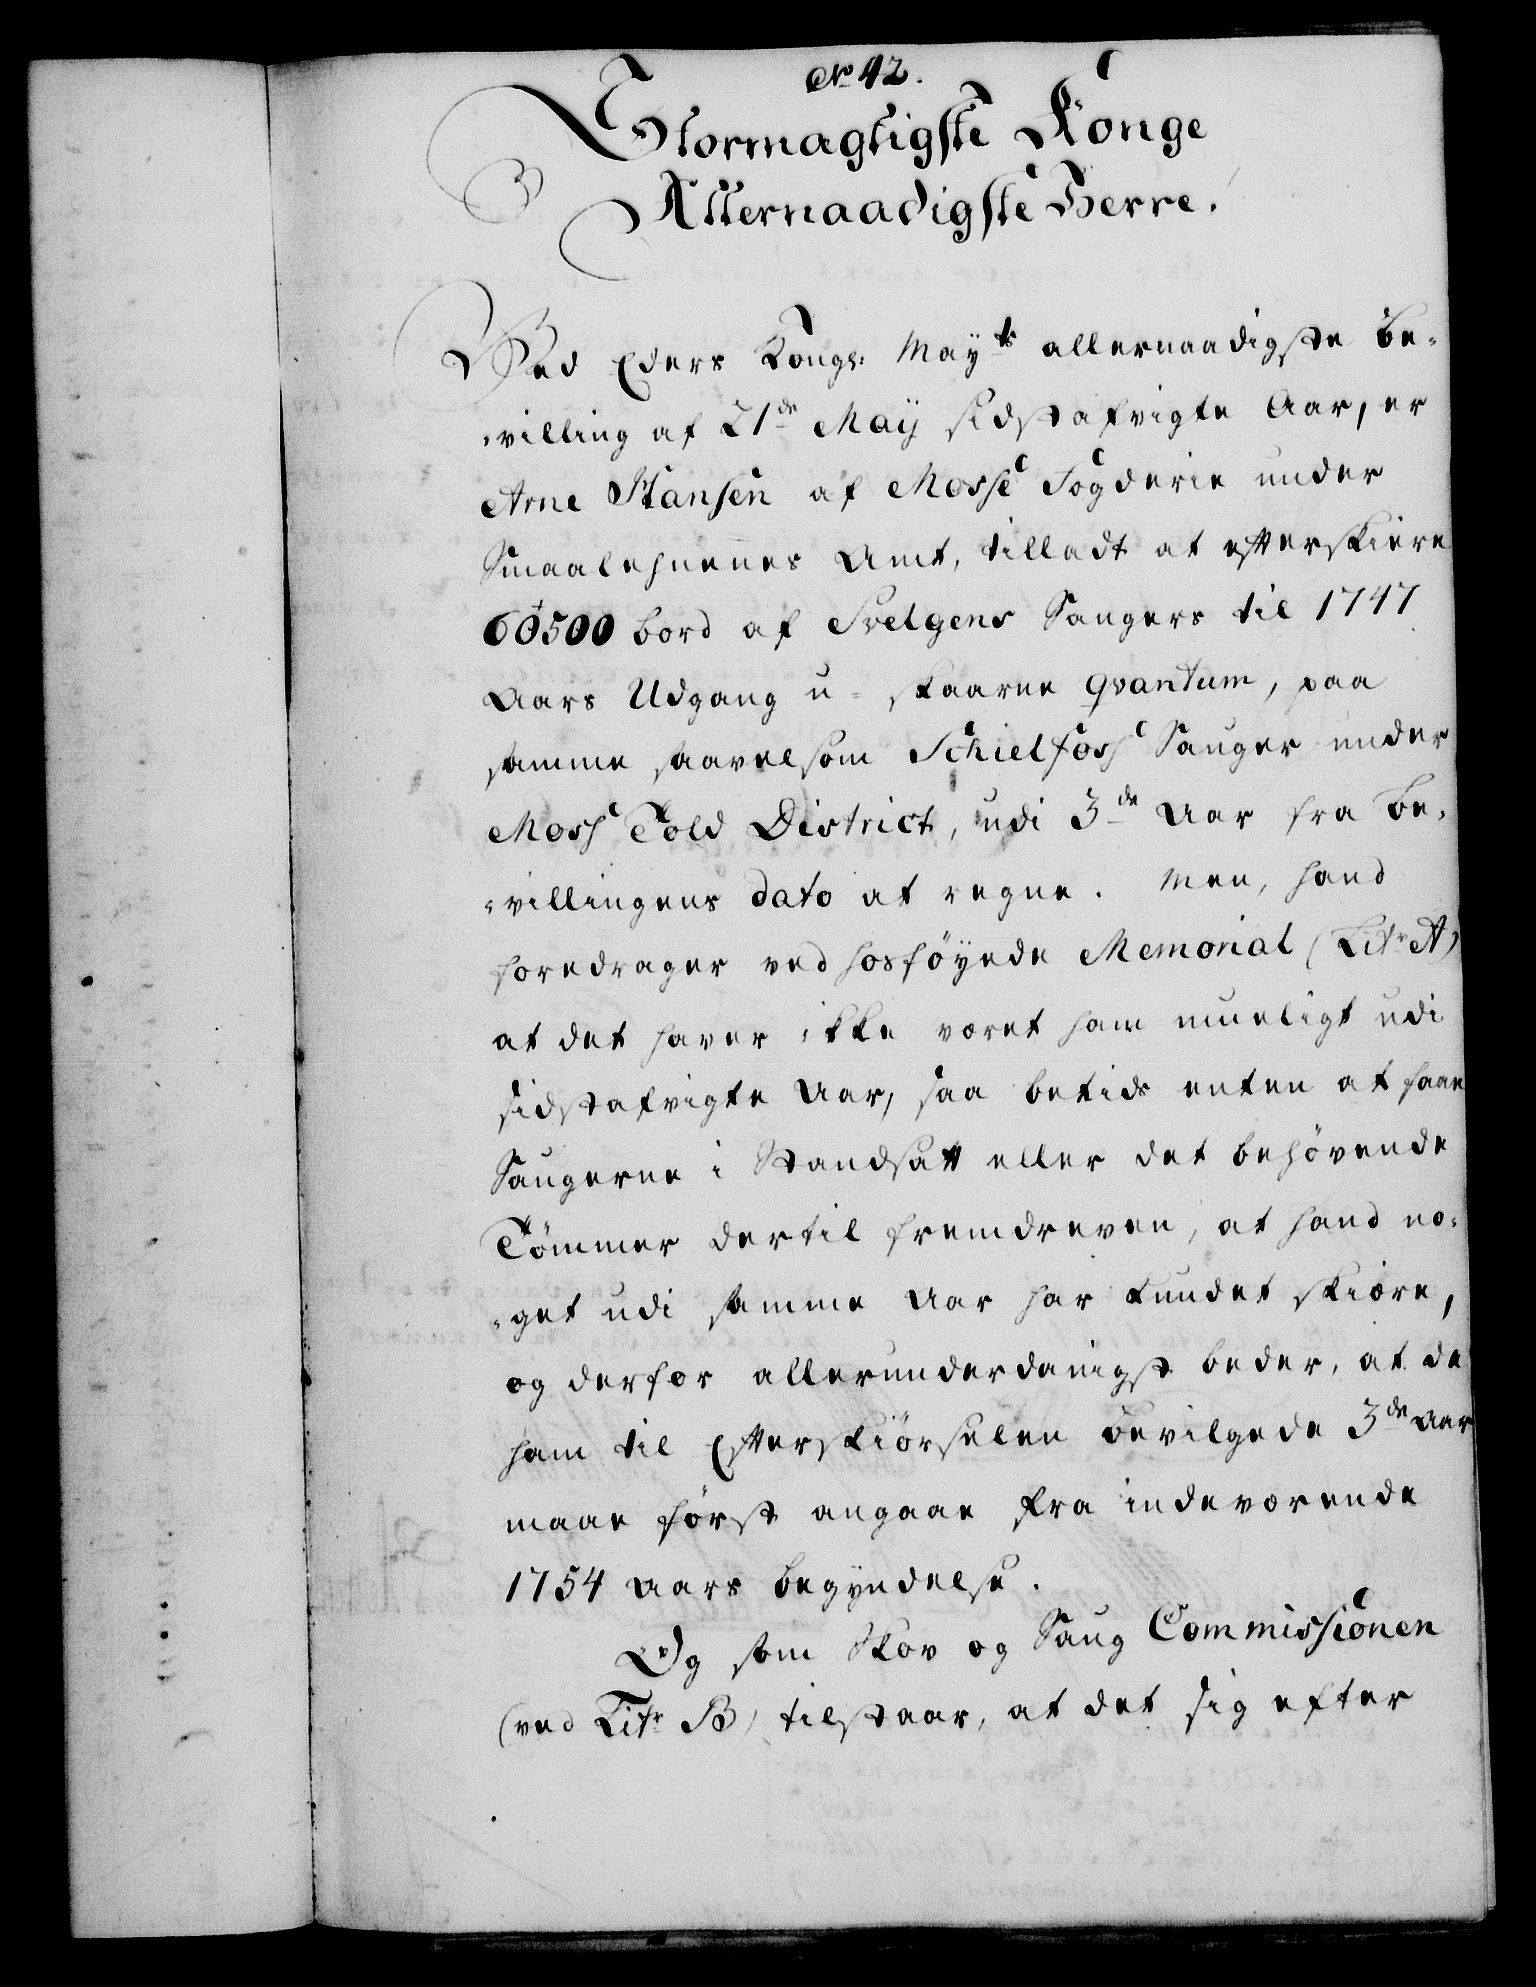 No 42.
Stormægtigste Konge
Allernaadigste Herre.
Ved Eders Kongl: Mayts allernaadigste be-
-villing af 21de Maij sidstafvigte Aar, er
Arne Hansen af Mosse Fogderie under
Smaalehnenes Amt, tilladt at efterskiere
60500 bord af Svelgens Sauger til 1747
Aars Udgang u-skaarne qvantum, paa
samme saavelsom Schielfoss Sauger under
Moss Told District, udi 3de Aar fra be-
-villingens dato at regne. Men, hand
foredrager ved hosföyede Memorial (Litr A)
at det haver ikke været ham mueligt udi
sidstafvigte Aar, saa betids enten at faae
Saugerne i Standsatt eller det behövende
Tömmer dertil fremdreven, at hand no-
-get udi samme Aar har kundet skiære,
og derfor allerunderdanigst beder, at de
ham til Efterskiörselen bevilgede 3de Aar
maae först angaae fra indeværende
1754 Aars begyndelse.
Og som Skov og Saug Commissionen
(ved Litr B) tilstaar, at det sig efter